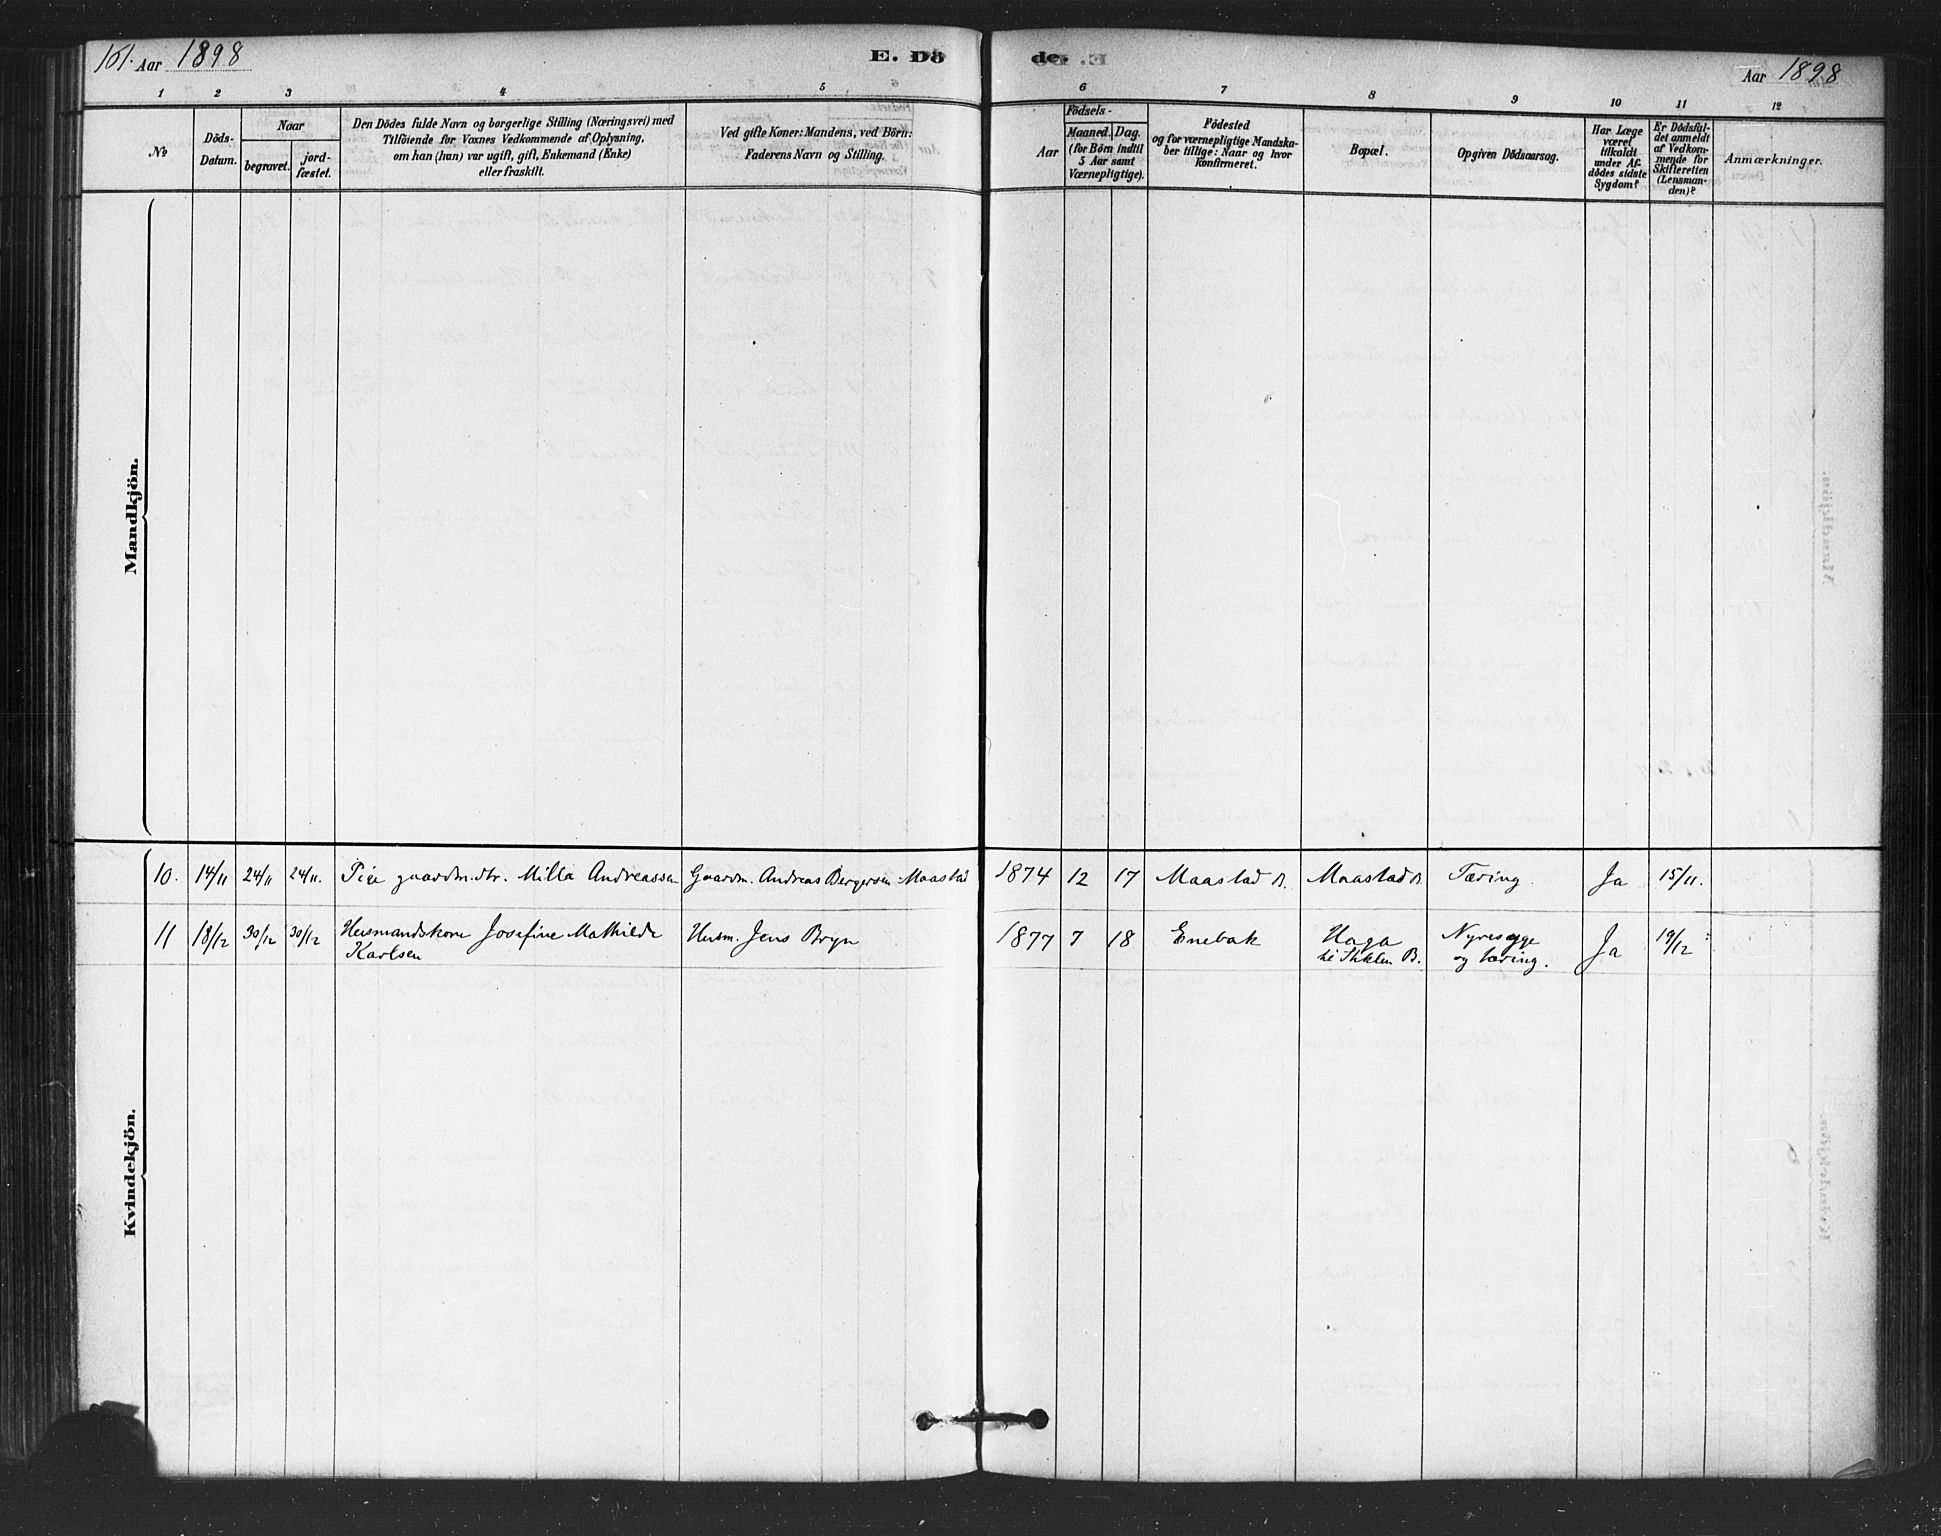 101. Aar 1898
E. Dö
de.
Aar 1898
1 2 3 4 5 6 7 8 9 10 11 12
No
Döds-
Datum.
Naar
begravet.
jord-
fæstet.
Den Dödes fulde Navn og borgerlige Stilling (Næringsvei) med
Tilföiende for Voxnes Vedkommende af Oplysning,
om han (hun) var ugift, gift, Enkemand (Enke)
eller fraskilt.
Ved gifte Koner: Mandens, ved Börn:
Faderens Navn og Stilling.
Födsels-
Aar
Maaned. Dag.
(for Börn indtil
5 Aar samt
Værnepligtige).
Födested
og for værnepligtige Mandska-
ber tillige: Naar og hvor
konfirmeret.
Bopæl.
Opgiven Dödsaarsag.
Har Læge
været
tilkaldt
under Af-
dödes sidste
Sygdom?
Er Dödsfal-
det anmeldt
af Vedkom-
mende for
Skifteretten
(Lensman-
den)?
Anmærkninger.
Mandkjön.
10. 14/11 24/11 24/11. Pige gaardm.dtr. Milla Andreassen Gaardm. Andreas Bergersen Maastad 1874 12 17 Maastad B. Maastad B. Tæring. Ja 15/11.
11 18/12 30/12 30/12 Husmandskone Josefine Mathilde
Karlsen
Husm. Jens Bryn 1877 7 18 Enebak Haga
B.
Nyresyge
og tæring.
Ja 19/12
Kvindekjön.